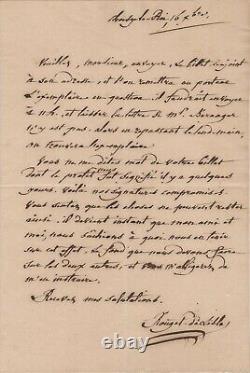 Choisy-le-Roi, 16 Xbre,
Veuillez, monsieur, envoyer le billet ci-joint
à son adresse et l'on remettra au porteur
l'exemplaire en question. Il faudrait envoyer
à, et laisser la lettre de Mr. Béranger
s'il n'y est pas, alors en repassant le lendemain,
on trouvera l'exemplaire.
Vous ne me dites mot de votre billet
dont le protêt fut signifié il y a quelques
jours. Voilà nos signatures compromises.
Vous sentez que les choses ne peuvent rester
ainsi. Il devient instant que mon ami et
moi, nous sachions à quoi nous en tenir
sur cet effet. Le fond que nous devons faire
sur les deux autres, et vous m'obligerez de
m'en instruire.
Recevez mes salutations.
Rouget de Lisle